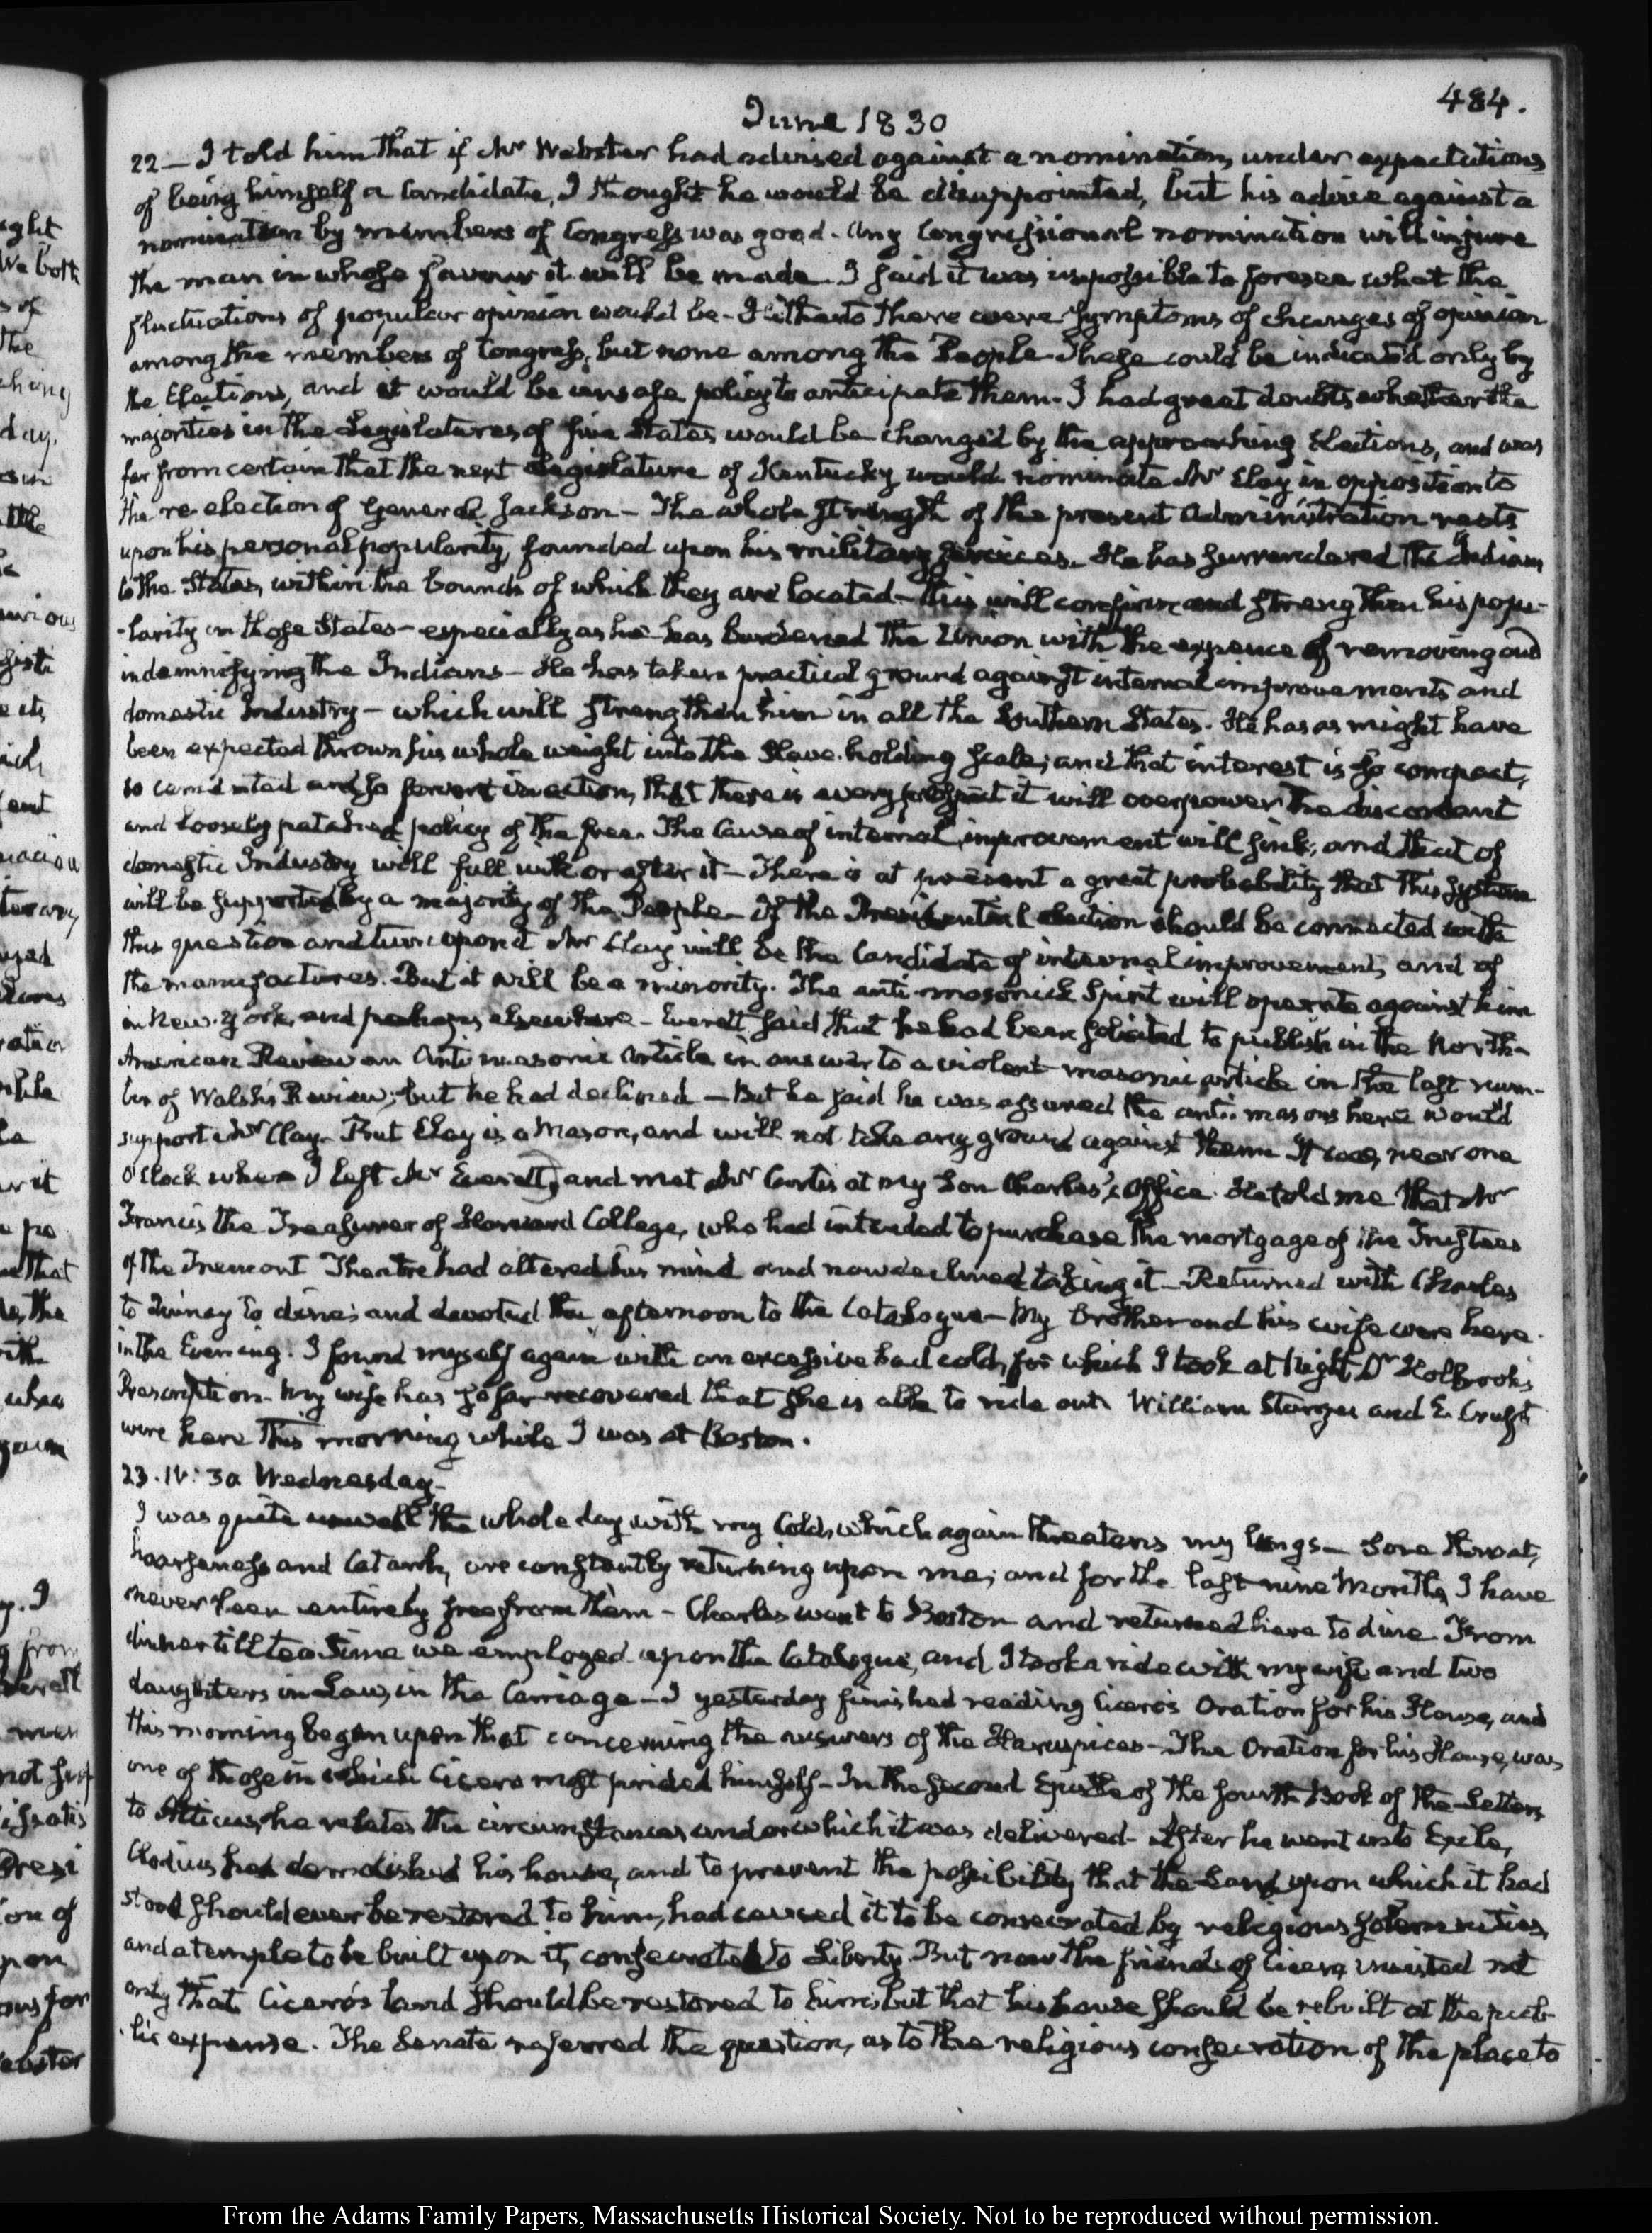 484.
June 1830
22 — I told him that if Mr Webster had advised against a nomination, under expectations
of being himself a Candidate, I thought he would be disappointed, but his advice against a
nomination by members of Congress was good. Any Congressional nomination will injure
the man in whose favour it will be made. I said it was impossible to foresee what the
fluctuations of popular opinion would be - Hitherto there were symptoms of changes of opinion
among the members of Congress, but none among the People. These could be indicated only by
the Elections, and it would be unsafe policy to anticipate them. I had great doubts whether the
majorities in the Legislatures of five States would be changed by the approaching Elections, and was
far from certain that the next Legislature of Kentucky would nominate Mr Clay in opposition to
the re-election of General Jackson - The whole strength of the present Administration rests
upon his personal popularity, founded upon his military services. He has surrendered the Indians
to the States, within the bounds of which they are located - this will confirm and strengthen his popu-
-larity in those States - especially as he has burdened the Union with the expence of removing and
indemnifying the Indians - He has taken practical ground against internal improvements and
domestic Industry - which will strengthen him in all the Southern States. He has as might have
been expected thrown his whole weight into the Slave-holding scale; and that interest is so compact,
so cemented and so fervent in action, that there is every prospect it will overpower the discordant
and loosely patched policy of the free. The Cause of internal improvement will sink, and that of
domestic Industry will fall with or after it - There is at present a great probability that this System
will be supported by a majority of the People - If the Presidential election should be connected with
this question and turn upon it Mr Clay will be the Candidate of internal improvement, and of
the manufactures. But it will be a minority. The anti-masonick Spirit will operate against him
in New-York, and perhaps elsewhere - Everett said that he had been solicited to publish in the North-
American Review an Anti masonic Article in answer to a violent masonic article in the last num-
ber of Walsh's Review; but he had declined — But he said he was assured the anti-masons here would
support Mr Clay. But Clay is a Mason, and will not take any ground against them. It was near one
O'Clock when I left Mr Everett, and met Mr Curtis at my Son Charles's Office. He told me that Mr
Francis the Treasurer of Harvard College, who had intended to purchase the mortgage of the Trustees
of the Tremont Theatre had altered his mind and now declined taking it - Returned with Charles
to Quincy to dine; and devoted the afternoon to the Catalogue - My Brother and his wife were here
in the Evening. I found myself again with an excessive bad cold, for which I took at Night Dr Holbrook's
Prescription. My wife has so far recovered that she is able to ride out. William Stanger and E. Cruft
were here this morning while I was at Boston.
23. IV: 30 Wednesday.
I was quite unwell the whole day with my Cold, which again threatens my lungs - Sore throat,
hoarseness and Catarrh, are constantly returning upon me; and for the last nine Months, I have
never been entirely free from them - Charles went to Boston and returned here to dine. From
dinner till tea time we employed upon the Catalogue, and I took a ride with my wife and two
daughters in Law, in the Carriage - I yesterday finished reading Cicero's Oration for his House, and
this morning began upon that concerning the answers of the Haruspices - The Oration for his House, was
one of those in which Cicero most prided himself - In the second Epistle of the fourth Book of the Letters
to Atticus, he relates the circumstances under which it was delivered - After he went into Exile,
Clodius had demolished his house, and to prevent the possibility that the Land upon which it had
stood should ever be restored to him, had caused it to be consecrated by religious solemnities,
and a temple to be built upon it, consecrated to Liberty. But now the friends of Cicero, insisted not
only that Cicero's land should be restored to him, but that his house should be rebuilt at the pub-
-lic expense. The Senate referred the question, as to the religious consecration of the place to
From the Adams Family Papers, Massachusetts Historical Society. Not to be reproduced without permission.